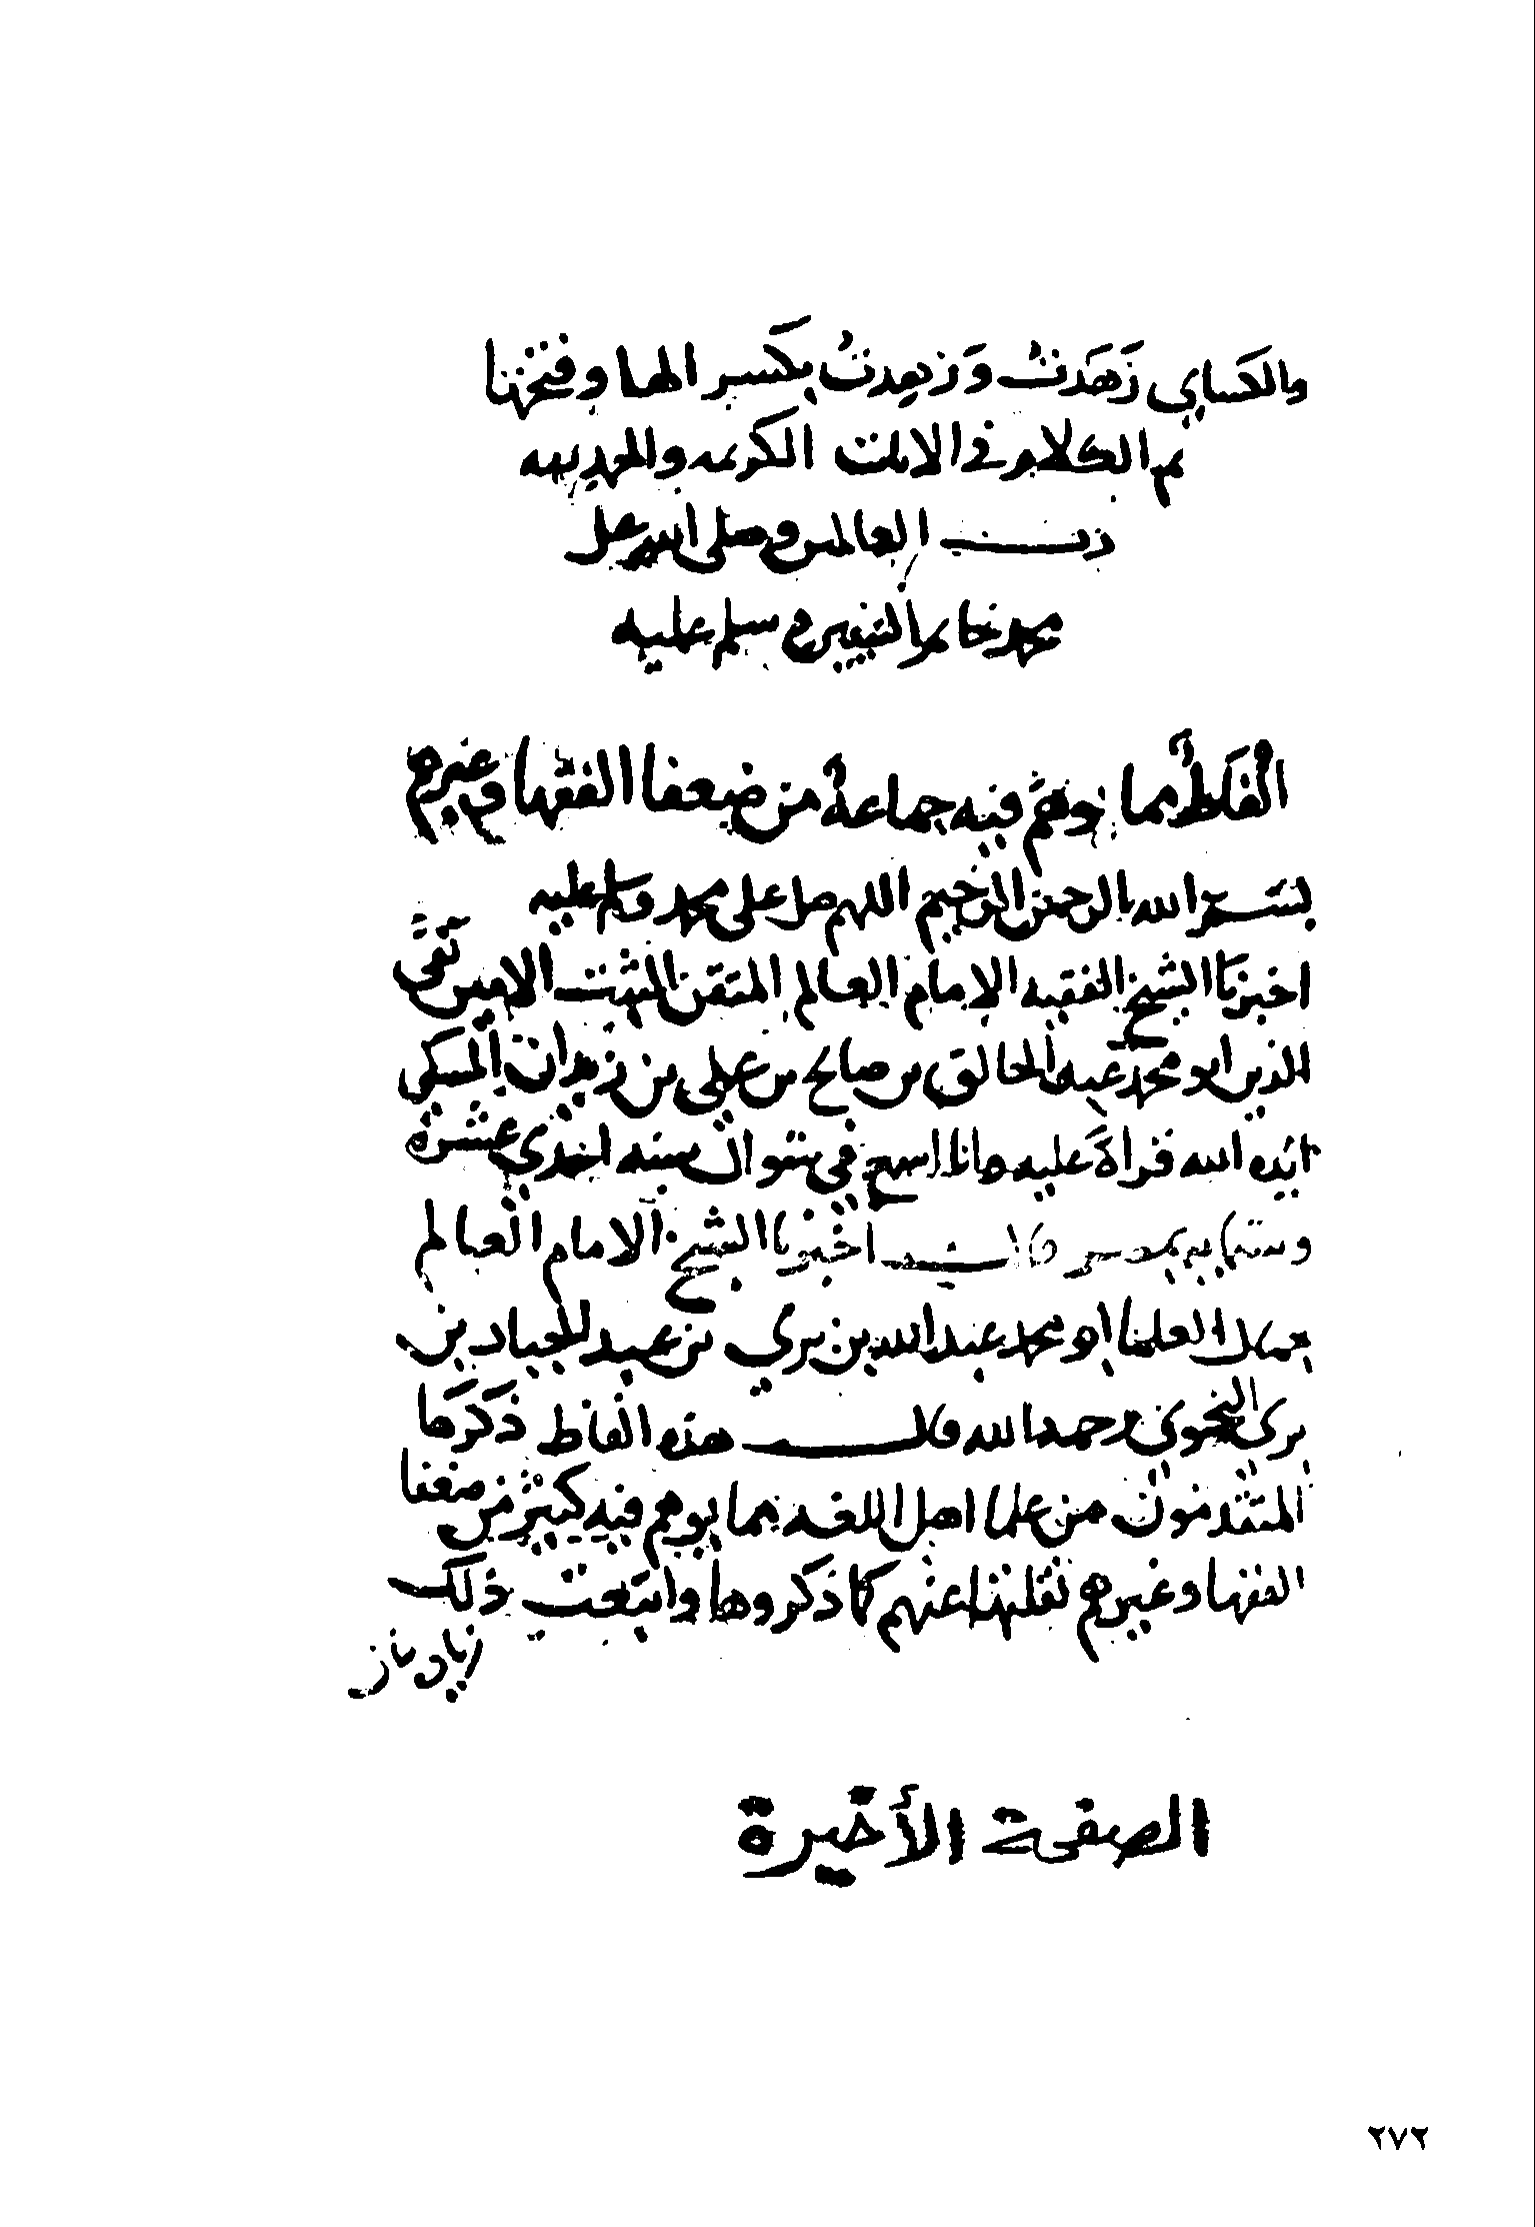 والكساي زَهَدتُ وَزهِدتُ بكسر الها وفتحها
تم الكلام في الابات الكريمه والحمد لله
رب العالمين وصلى الله على
محمد خاتم النبيين وسلم عليه
الغلط مما توهم فيه جماعةٌ من ضعفا الفقها وغيرهم
بسم الله الرحمن الرحيم اللهم صل على محمد وسلم عليه
اخبرنا الشيخ الفقيه الإمام العالم المتقن الثبت الامين تقي
الدين ابو محمد عبد الخالق بن صالح بن علي بن زيدان المسكي
ايده الله قراةً عليه وانا اسمع في شوال سنه احدي عشرة
وستمايه بمصر قال اخبرنا الشيخ الامام العالم
جمال العلما ابو محمد عبد الله بن بري بن عبد الجبار بن
بري النحوي رحمه الله قال هذه الفاظ ذكرها
المتقدمون من علما اهل اللغه مما يوهم فيه كثير من ضعفا
الفقها وغيرهم نقلتها عنهم كما ذكروها واتبعت ذلك
الصفحة الأخيرة
٢٧٢